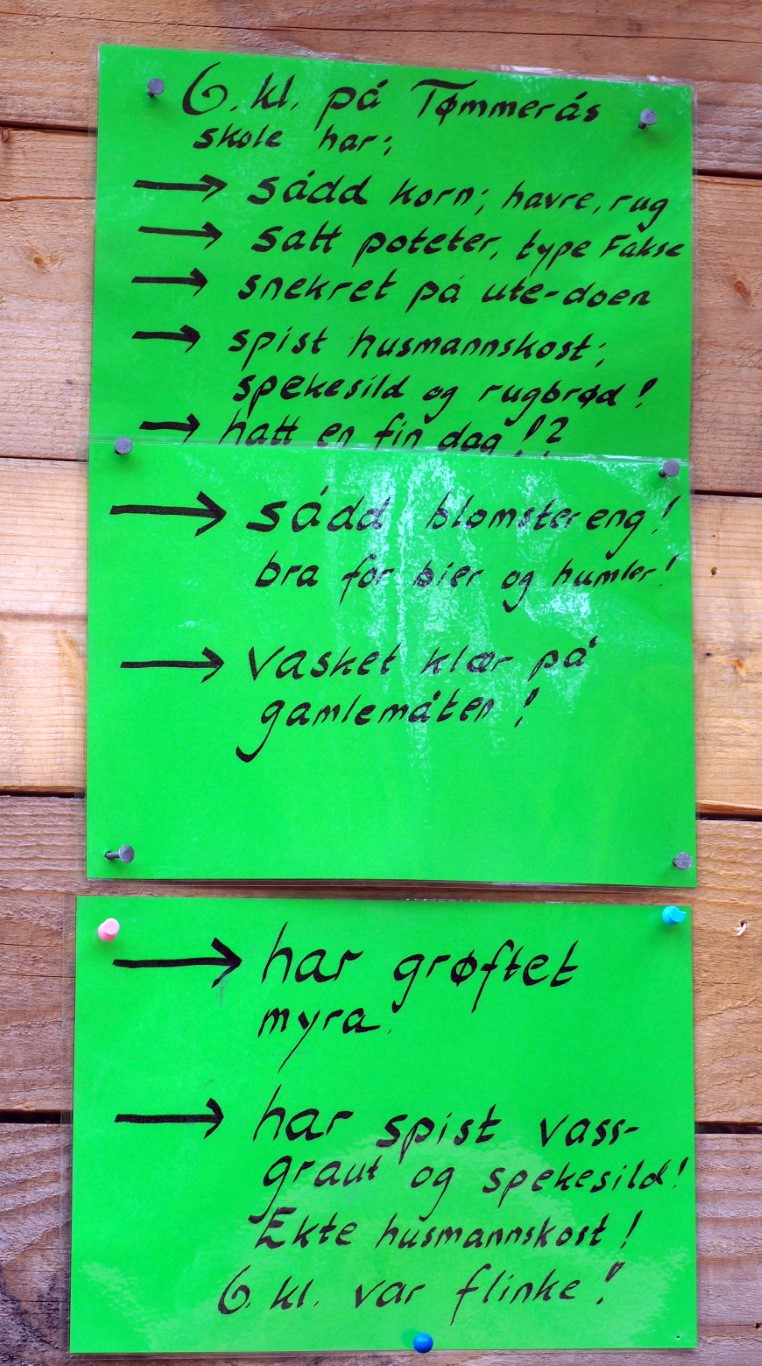 6. kl. på Tømmerås
skole har;
→ sådd korn; havre, rug
→ satt poteter, type Fakse
→ snekret på ute-doen
→ spist husmannskost;
spekesild og rugbrød!
→ hatt en fin dag!?
→ sådd blomstereng!
bra for bier og humler!
→ vasket klær på
gamlemåten!
→ har grøftet
myra.
→ har spist vass-
graut og spekesild!
Ekte husmannskost!
6. kl. var flinke!